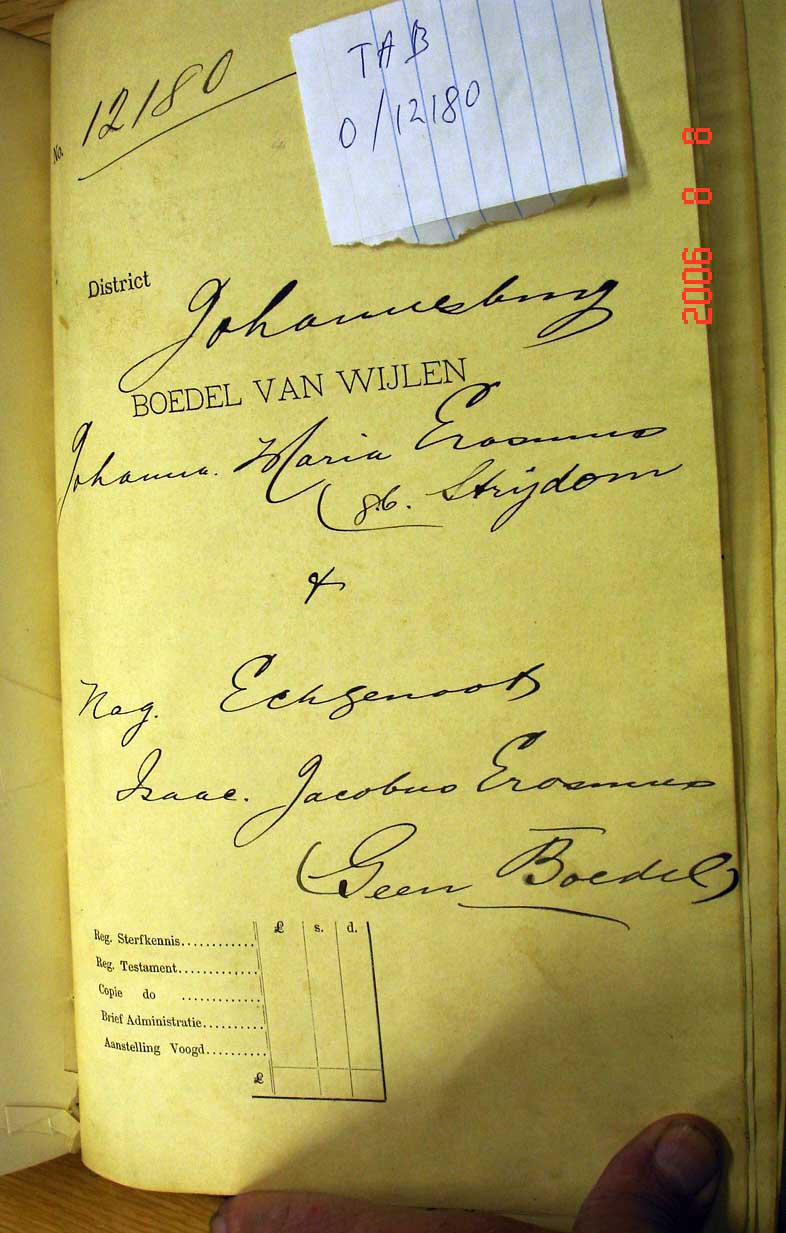 TAB
0/12180
No. 12180
2006 8 8
District Johannesburg
BOEDEL VAN WIJLEN
Johanna. Maria Erasmus
(gb. Strijdom
&
Nag. Echgenoot
Isaac. Jacobus Erasmus
(Geen Boedel)
£ s. d.
Reg. Sterfkennis............
Reg. Testament.............
Copie do ............
Brief Administratie.........
Aanstelling Voogd..........
£